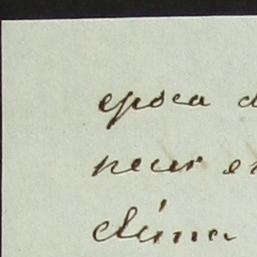 epoca d
neur en
clima